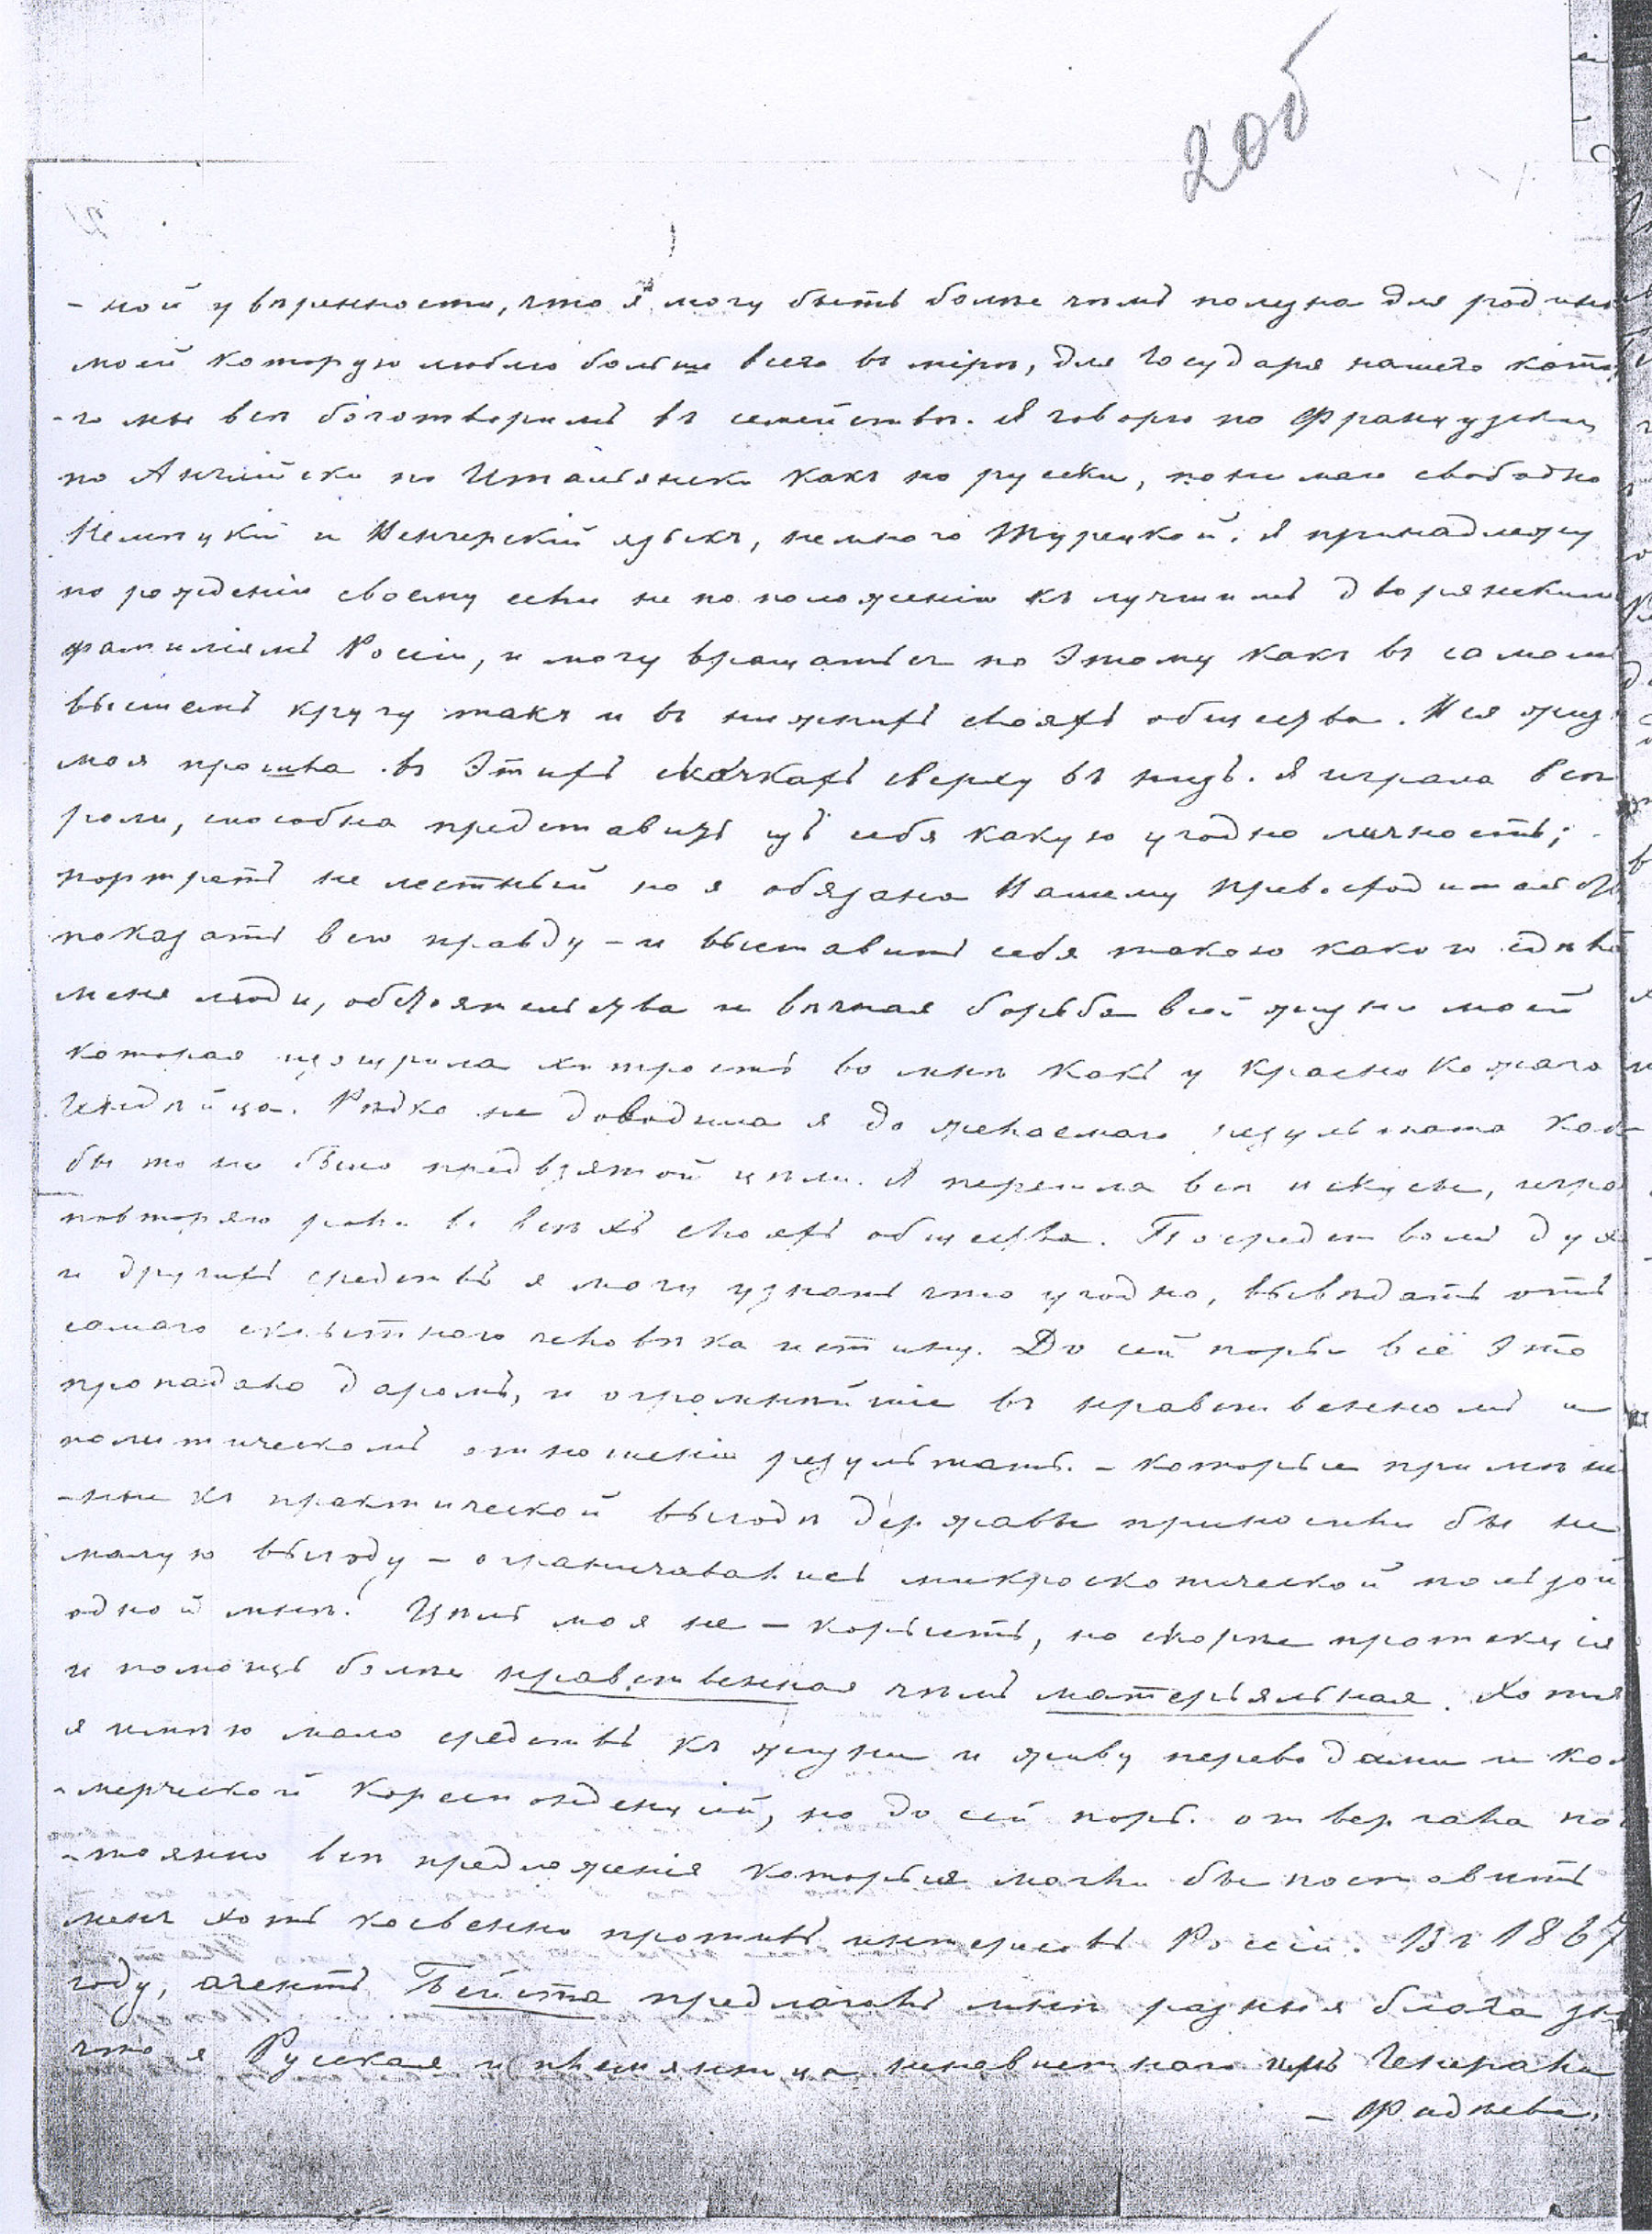 20об
- ной увѣренности, что я могу быть болѣе чѣмъ полезна для родины
моей которую люблю больше всего въ мірѣ, для Государя нашего кото
-го мы всѣ боготворимъ въ семействѣ. Я говорю по Французски,
по Англійски по Итальянски какъ по русски, понимаю свободно
Нѣмѣцкій и Венгерскій языкъ, немного Турецкой. Я принадлежу
по рожденію своему если не по положенію къ лучшимъ дворянскимъ
фамиліямъ Россіи, и могу вращаться по этому какъ въ самомъ
высшемъ кругу такъ и въ нижнихъ слояхъ общества. Вся жизнь
моя прошла въ этихъ скачкахъ сверху въ низъ. Я играла всѣ
роли, способна представить изъ себя какую угодно личность;
портретъ не лестный но я обязана Вашему Превосходительству
показать всю правду - и выставить себя такою какою сдѣлали
меня люди, обстоятельства и вѣчная борьба всей жизни моей
которая изощрила хитрость во мнѣ какъ у краснокожаго
Индѣйца. Рѣдко не доводила я до желаемаго результата како
бы то ни было предвзятой цѣли. Я перешла всѣ искусы, играла
повторяю роли во всѣхъ слояхъ общества. Посредствомъ духовъ
и другихъ средствъ я могу узнать что угодно, вывѣдать отъ
самаго скрытнаго человѣка истину. До сей поры всё это
пропадало даромъ, и огромнѣйшіе въ нравственномъ и
политическомъ отношеніи результаты - которые примѣнен
-ные къ практической выгодѣ державы приносили бы не
малую выгоду - ограничавались микроскопической пользой
одной мнѣ. Цѣль моя не - корысть, но скорѣе протекція
и помощь болѣе нравственная чѣмъ матерьяльная. Хотя
я имѣю мало средствъ къ жизни и живу переводами и ком
-мерческой кореспонденціей, но до сей поры отвергала пос
-тоянно всѣ предложенія которыя могли бы поставить
меня хоть косвенно противъ интересовъ Россіи. Въ 1867
году, агентъ Бейста предлагалъ мнѣ разныя блага за
что я Русская и племянница ненавистнаго имъ Генерала
- Фадѣева.